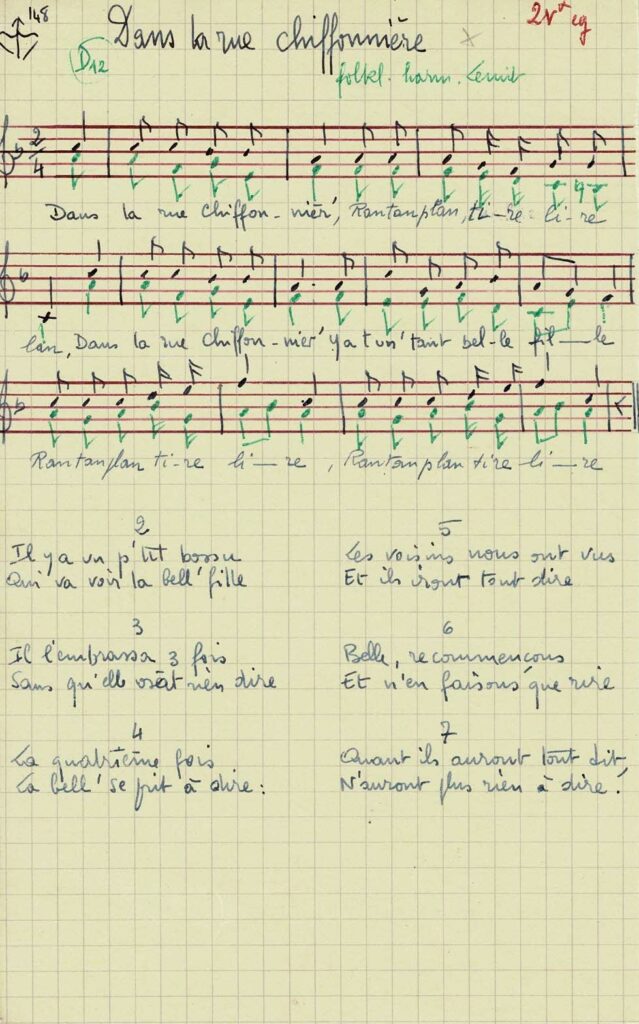 148
Dans la rue chiffonnière
2v x eg
D12
folkl. harm. Lenit
2
4
Dans la rue Chiffon-nièr', Rantanplan, ti-re-li-re
lan, Dans la rue Chiffon-nièr' y a t un' tant bel-le fil-le
Rantanplan ti-re li-re, Rantanplan tire li-re
2
Il y a un p'tit bossu
Qui va voir la bell' fille
3
Il l'embrassa 3 fois
Sans qu'elle osât rien dire
4
La quatrième fois
La bell' se prit à dire :
5
Les voisins nous ont vus
Et ils iront tout dire
6
Belle, recommençons
Et n'en faisons que rire
7
Quant ils auront tout dit,
N'auront plus rien à dire !